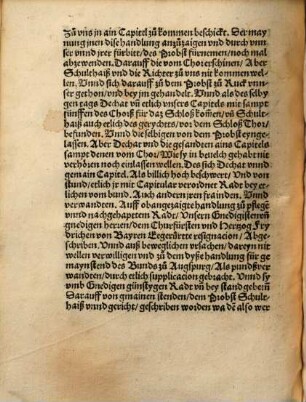 Zů vns in ain Capitel zů kommen beschickt. Der may
nung jnen dise handlung anzůzaigen vnd durch vnn
ser vnnd jrer fürbitt/ des Probst fürnemen/ noch mal
abzewenden. Darauff die vom Chor erschinen/ Aber
Schulthaiß vnd die Richter zů vns nit kommen wel=
len. Vnnd sich darauff zů dm Probst zů Ruck vnn=
ser gethon/ vnd bey jm gehandelt. Vnnd als des selby
gen tags Dechat vn̄ etlich vnsers Capitels mit sampt
fünffen des Chorß für das Schloß komen/ vn̄ Schult
haiß auch etlich des gerychtes/ vor dem Schloß Thor/
befunden. Vnnd die selbigen von dem Probst eynge=
lassen. Aber Dechat vnd die gesandten ains Capitels
sampt denen vom Chor/ Wie sy in beüelch gehabt nit
verhören noch einlassen wellen. Des sich Dechat vnnd
gemain Capitel/ Als billich hoch beschwert/ Vnd von
stund/ etlich jr mit Capitular verordnet Radt bey er=
lichen vom bund. Auch andern jren frainden. Vnnd
verwandten. Auff obangezaigte handlung zů pflege
vnnd nachgehaptem Radt/ Vnsern Gnedigisten vn̄
gnedigen herren/ dem Churfürsten vnd Herzog Fry
drichen von Bayren Legerürtte resignacion/ Abge=
schriben. Vnnd auß beweglichen vrsachen/ dareyn nit
wellen verwilligen vnd zů dem dyße handlung für ge
mayn stend des Bunds zů Augspurg/ Als pundß ver
wandten/ durch etlich supplicacion gebracht. Vnnd sy
vmb Gnedigen günstygen Radt vn̄ bey stand gebetn̄
Darauff von gmainen stenden/ dem Probst Schult=
haiß vnnd gericht/ geschriben worden wa dē also wer